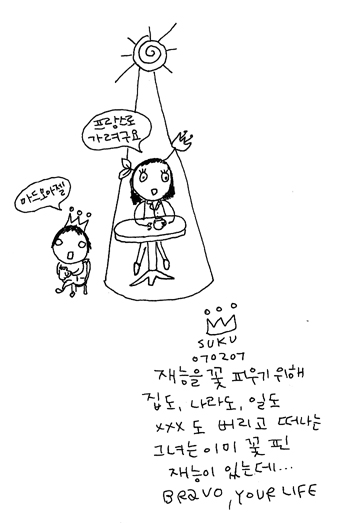 프랑스로
가려구요
마드모아젤
SUKU
070207
재능을 꽃 피우기 위해
집도, 나라도, 일도
xxx도 버리고 떠나는
그녀는 이미 꽃 핀
재능이 있는데...
BRAVO, YOUR LIFE